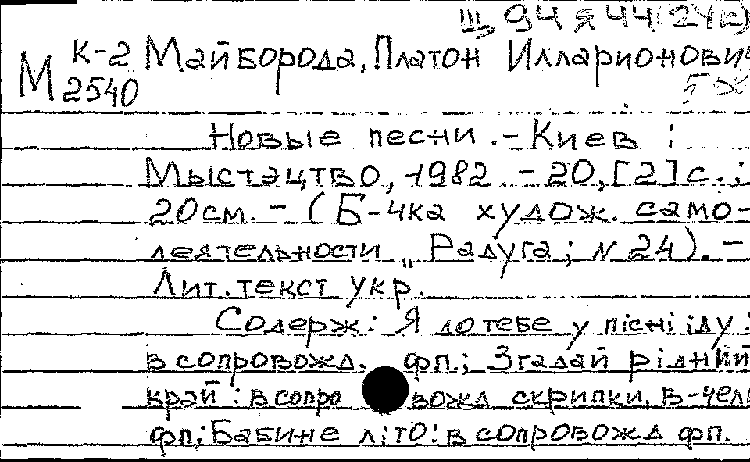 Щ 94 Я 44(2Ук)
К-2 Майборода, Платон Илларионович
М 2540
Новые песни. - Киев :
Мыстэцтво, 1982. - 20, [2] с. ;
20 см. - ( Б-чка худож. само-
деятельности „Радуга ; N 24). -
Лит. текст укр.
Содерж: Я до тебе у пісні іду :
в сопровожд. фп.; Згадай рідний
край : в сопровожд скрипки, в-чели
фп; Бабине літо: в сопровожд фп.